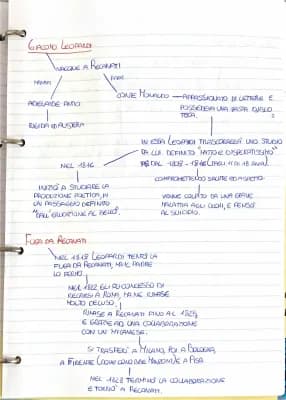 GIACOMO LEOPARDI
NACQUE A RECANATI
MAMMA
PAPÀ
ADELAIDE ANTICI
CONTE MONALDO
APPASSIONATO DI LETTERE E
POSSEDEVA UNA VASTA BIBLIO
TECA.
RIGIDA ED AUSTERA
IN ESSA LEOPARDI TRASCORRERÀ UNO STUDIO
DA LUI DEFINITO "MATTO E DISPERATISSIMO"
DAL 1809-1816 (DAGLI 11 AI 18 ANNI)
NEL 1816
COMPROMETTENDO SALUTE ED ASPETTO
INIZIÒ A STUDIARE LA
PRODUZIONE POETICA, IN
UN PASSAGGIO DEFINITO
"DALL'ERUDIZIONE AL BELLO".
VENNE COLPITO DA UNA GRAVE
MALATTIA AGLI OCCHI, E PENSÒ
AL SUICIDIO.
FUGA DA RECANATI
NEL 1819 LEOPARDI TENTÒ LA
FUGA DA RECANATI, MA IL PADRE
LO FERMÒ.
NEL 1822 GLI FU CONCESSO DI
RECARSI A ROMA, MA NE RIMASE
MOLTO DELUSO.
RIMASE A RECANATI FINO AL 1825,
E GRAZIE AD UNA COLLABORAZIONE
CON UN MILANESE.
SI TRASFERÌ A MILANO, POI A BOLOGNA,
A FIRENTE (DOVE CONOBBE MANZONI) E A PISA
NEL 1828 TERMINÒ LA COLLABORAZIONE
E TORNÒ A RECANATI.